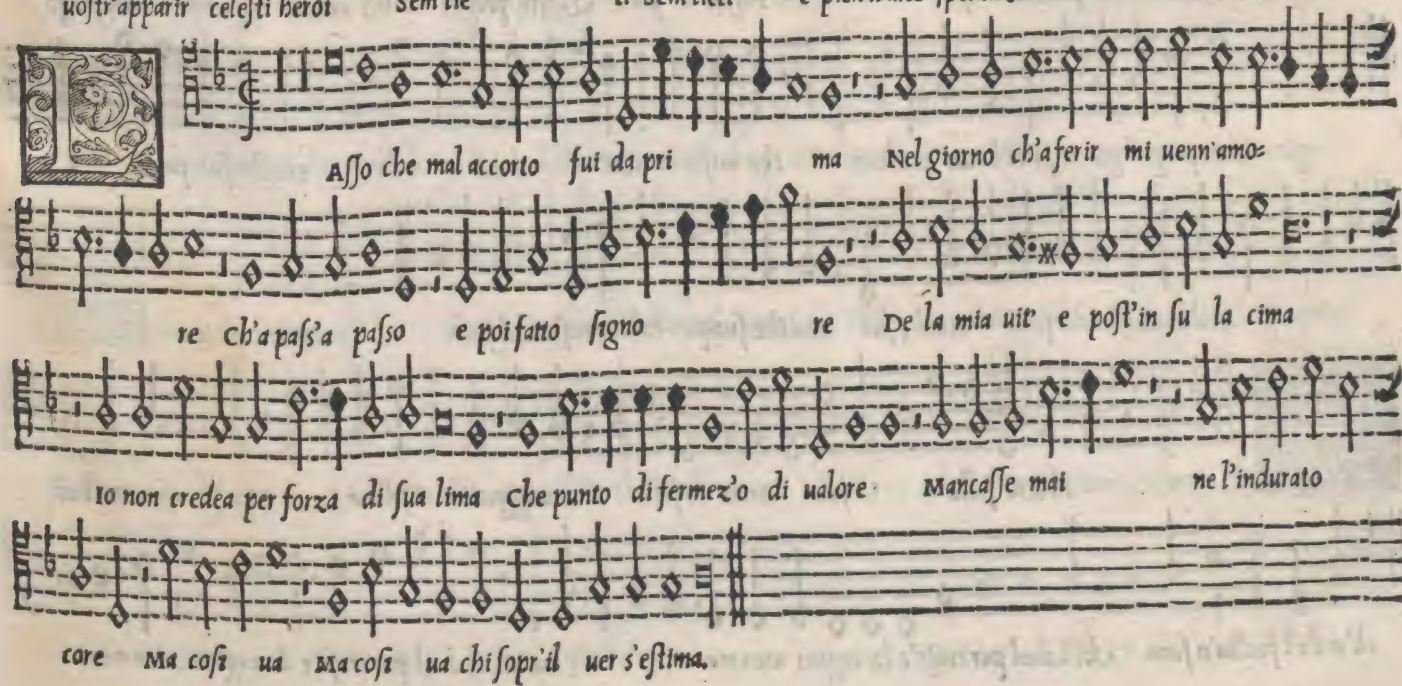 uostr'apparir celesti heroi
L
Asso che mal accorto fui da pri ma Nel giorno ch'a ferir mi uenn'amo=
re Ch'a pass'a passo e poi fatto signo re De la mia uit' e post'in su la cima
Io non credea per forza di sua lima Che punto di fermez'o di ualore Mancasse mai ne l'indurato
core Ma cosi ua Ma cosi ua chi sopr'il uer s'estima.